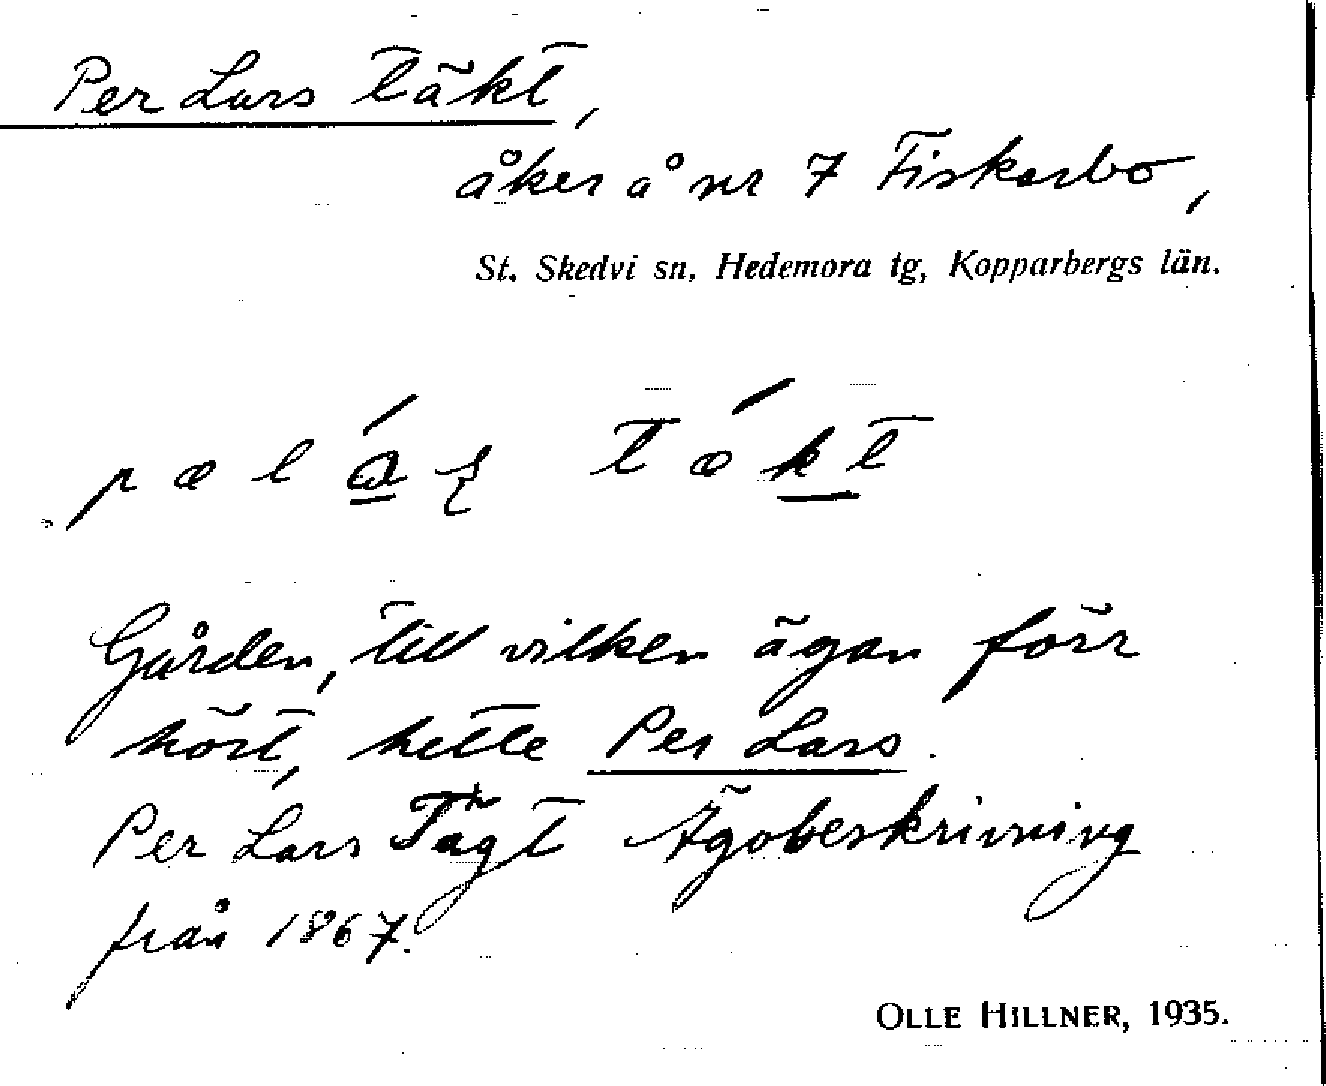 Per Lars täkt,
åker å nr 7 Fiskarbo,
St. Skedvi sn, Hedemora tg, Kopparbergs län.
Gården, till vilken ägan förr
hört, hette Per Lars.
Per Lars Tägt Ägobeskrivning
från 1867.
OLLE HILLNER, 1935.